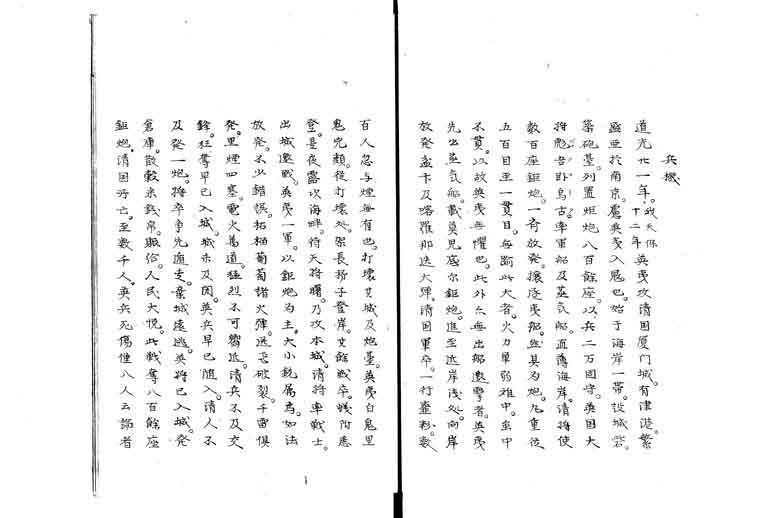 兵機
道光廿一年。我天保十二年英夷攻清国厦门城。有津港繁
盛亜於南京。慮英夷入寇也。始于海岸一帯。設城砦。
築砲臺。列置炬炮八百餘座。以兵二万固守。英国大
将 卧烏古。率軍船及蒸気船。直薄海岸。清将使
数百座鉅炮。一斉放発。攘逐夷船。然其为炮。九重径
五百目至一貫目。無踰此大者。火力単弱难中。虽中
不貫。以故英夷無懼也。此外又無出船邀撃者。英夷
先出蒸気船。載莫児感尓鉅炮。進至迠岸浅处。向岸
放発盆卞及喀羅那迭大弾。清国軍卒。一行齏粉。数
百人忽与煙無有也。打壊其城及炮臺。英夷白鬼黒
鬼児類。従打壊处。架長梯子登岸。其餘戦卒。蟻附悉
登。是夜露次海畔。待天将曙。乃攻本城。清将率戦士。
出城邀戦。英夷一軍。以鉅炮为主。大小銃属焉。如法
放発。不少錯誤。柘榴葡萄諸火弾。迸飛破裂。千雷俱
発。黒煙四塞。電火萬道。猛烈不可嚮近。清兵不及交
鋒。狂奪早已入城。城未及閉。英兵早已随入。清人不
及発一炮。将卒争先遁支。棄城遠逃。英将已入城。発
倉庫。散穀米銭帛。賑给人民大悦。此戦奪八百餘座
鉅炮。清国丹亡。至数千人。英兵死傷僅八人云。諂者